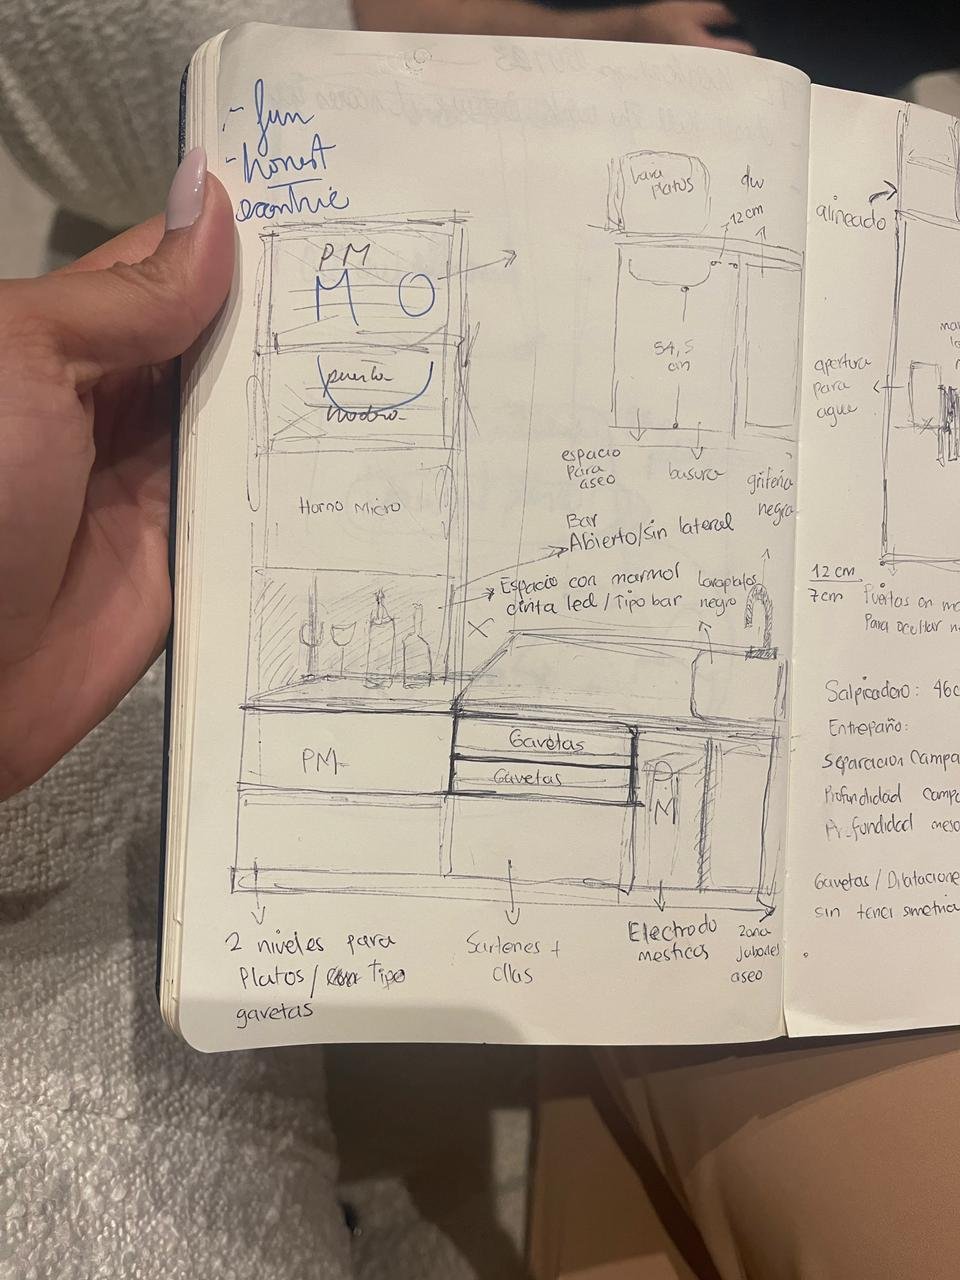 - fun
- honest
eccentric
PM
M O
puerta
madera
Horno Micro
lava
platos
dw
12 cm
54,5
cm
espacio
para
aseo
basura
grifería
negra
Bar
Abierto/sin lateral
Espacio con marmol
cinta led / Tipo bar
Lavaplatos
negro
X
PM
Gavetas
Gavetas
M
2 niveles para
Platos/ Tipo
gavetas
Sartenes +
ollas
Electrodo
mesticos
zona
jabones
aseo
alineado
apertura
para
agua
12 cm
7cm
Puertas en
Para ocultar
Salpicadero: 46
Entrepaño:
Separacion Campa
Profundidad campa
Profundidad meso
Gavetas / Dilatacione
sin tener simetria